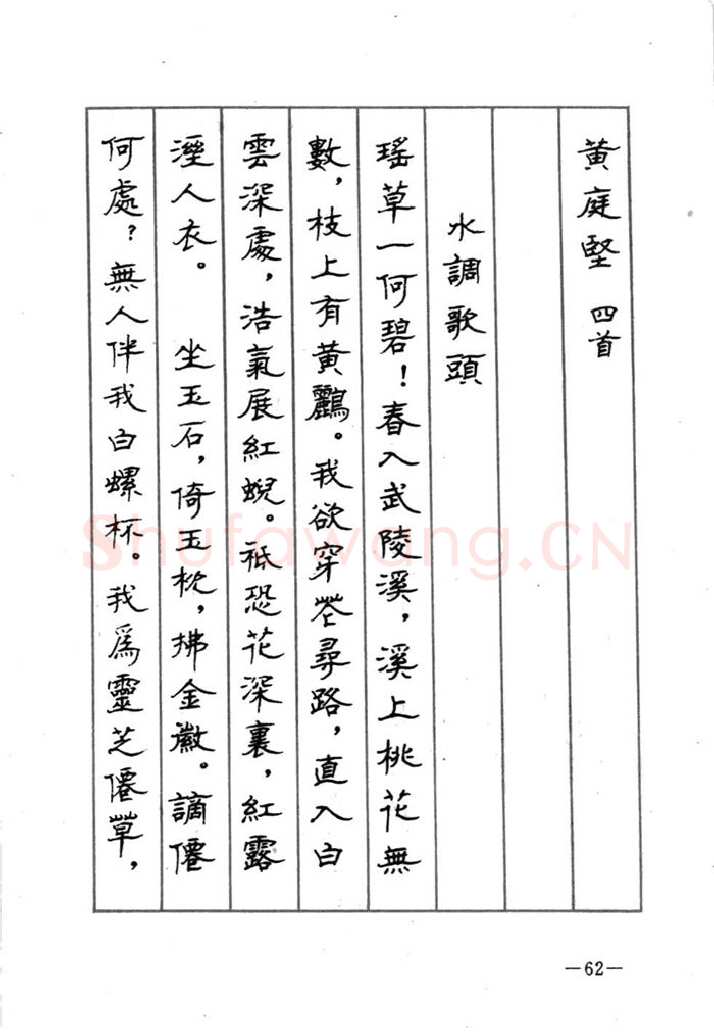 黄庭堅 四首
水調歌頭
瑤草一何碧！春入武陵溪，溪上桃花無
數，枝上有黄鸝。我欲穿花尋路，直入白
雲深處，浩氣展紅蜺。祇恐花深裏，紅露
溼人衣。 坐玉石，倚玉枕，拂金徽。謫僊
何處？無人伴我白螺杯。我爲靈芝僊草，
—62—
Shufawang.CN